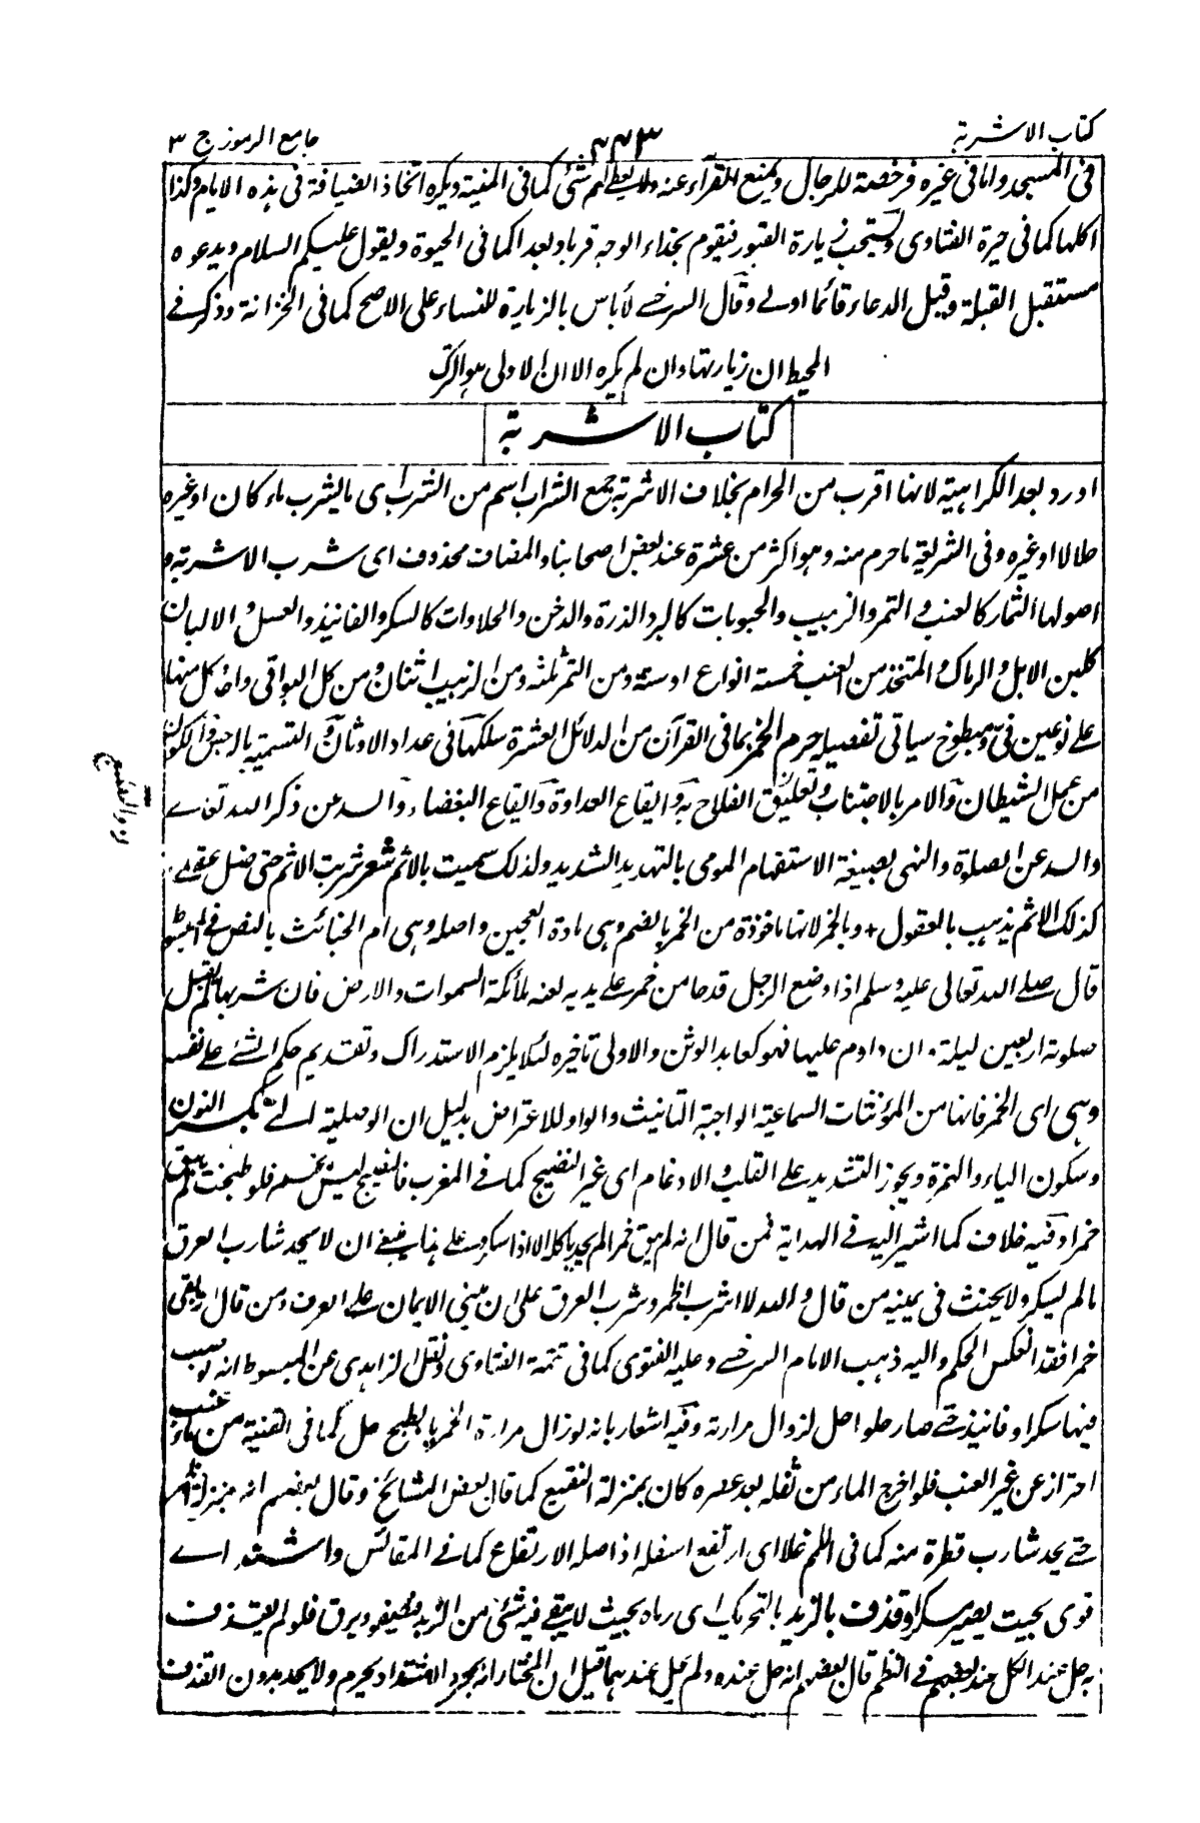 كتاب الاشربة
٣٤٣
جامع الرموز ج ٣
في المسجد واما في غيره فرخصة للرجال ويمنع القرآء عنه ولا يعطى لهم شئ كما في المنية ويكره اتخاذ الضيافة في هذه الايام وكذا
اكلها كما في حيرة الفتاوى ويستحب زيارة القبور فيقوم بحذاء الوجه قربا وبعدا كما في الحيوة ويقول عليكم السلام ويدعوه
مستقبل القبلة وقيل الدعاء قائما اولى وقال السرخسى لاباس بالزيارة للنساء على الاصح كما في الخزانة وذكر في
المحيط ان زيارتها وان لم يكره الا ان الاولى هو الترك
كتاب الاشربة
اورد بعد الكراهية لانها اقرب من الحرام بخلاف الاشربة جمع الشراب اسم من الشرب اى ما يشرب ماء كان او غيره
حلالا او غيره وفى الشريعة ما حرم منه وهو اكثر من عشرة عند بعض اصحابنا والمضاف محذوف اى شرب الاشربة و
اصولها الثمار كالعنب والتمر والزبيب والحبوبات كالبر والذرة والدخن والحلاوات كالسكر والفانيذ والعسل والالبان
كلبن الابل والرماك والمتخذ من العنب خمسة انواع او ستة ومن التمر ثلثة ومن الزبيب اثنان ومن كل البواقى واحد كل منها
على نوعين نى ومطبوخ سياتى تفصيله حرم الخمر بما فى القرآن من الدلائل العشرة سلكها فى عداد الاوثان والتسمية بالرجس والكون
من عمل الشيطان والامر بالاجتناب وتعليق الفلاح به وايقاع العداوة وايقاع البغضاء والصد عن ذكر الله تعالى
والصد عن الصلوة والنهى بصيغة الاستفهام المومى بالتهديد الشديد ولذلك سميت بالاثم شعر شربت الاثم حتى ضل عقلى
كذلك الاثم يذهب بالعقول + وبالخمر لانها ماخوذة من الخمر بالضم وهى مادة العجين واصله وهى ام الخبائث بالنص فى المبسوط
قال صلى الله تعالى عليه وسلم اذا وضع الرجل قدحا من خمر على يديه لعنه ملائكة السموات والارض فان شربها لم تقبل
صلوته اربعين ليلة وان داوم عليها فهو كعابد الوثن والاولى تاخيره لئلا يلزم الاستدراك وتقديم حكم الشئ على نفسه
وهى اى الخمر فانها من المؤنثات السماعية الواجبة التانيث والواو للاعتراض بدليل ان الوصلية النى بكسر النون
وسكون الياء والهمزة ويجوز التشديد على القلب والادغام اى غير النضيج كما فى المغرب فالنضيج ليس بخمر فلو طبخت لم يبق
خمرا وفيه خلاف كما اشير اليه فى الهداية فمن قال انه لم يبق خمرا لم يحد باكله الا اذا سكر وعلى هذا ينبغى ان لا يحد شارب العرق
ما لم يسكر ولا يحنث فى يمينه من قال والله لا اشرب الخمر وشرب العرق على ان مبنى الايمان على العرف ومن قال انه بقى
خمرا فقد انعكس الحكم واليه ذهب الامام السرخسى وعليه الفتوى كما فى تتمة الفتاوى ونقل الزاهدى عن المبسوط انه لو صب
فيها سكرا او فانيذ حتى صار حلوا حل لزوال مرارته وفيه اشعار بانه لو زال مرارة الخمر بالطبخ حل كما فى القنية من ماء عنب
احتراز عن غير العنب فلو اخرج الماء من ثفله بعد عصره كان بمنزلة النقيع كما قال بعض المشائخ وقال بعضهم انه بمنزلة الخمر
حتى يحد شارب قطرة منه كما فى النظم غلا اى ارتفع اسفله اذ اصله الارتفاع كما فى المقائس واشتد اى
قوى بحيث يصير مسكرا وقذف بالزبد بالتحريك اى رماه بحيث لا يبقى فيه شئ من الزبد فيصفو ويرق فلو لم يقذف
به حل عند الكل عند بعضهم فى النظم قال بعضهم انه حل عنده ولم يحل عندهما قيل ان المختار انه بمجرد الاشتداد يحرم ولا يحد بدون القذف